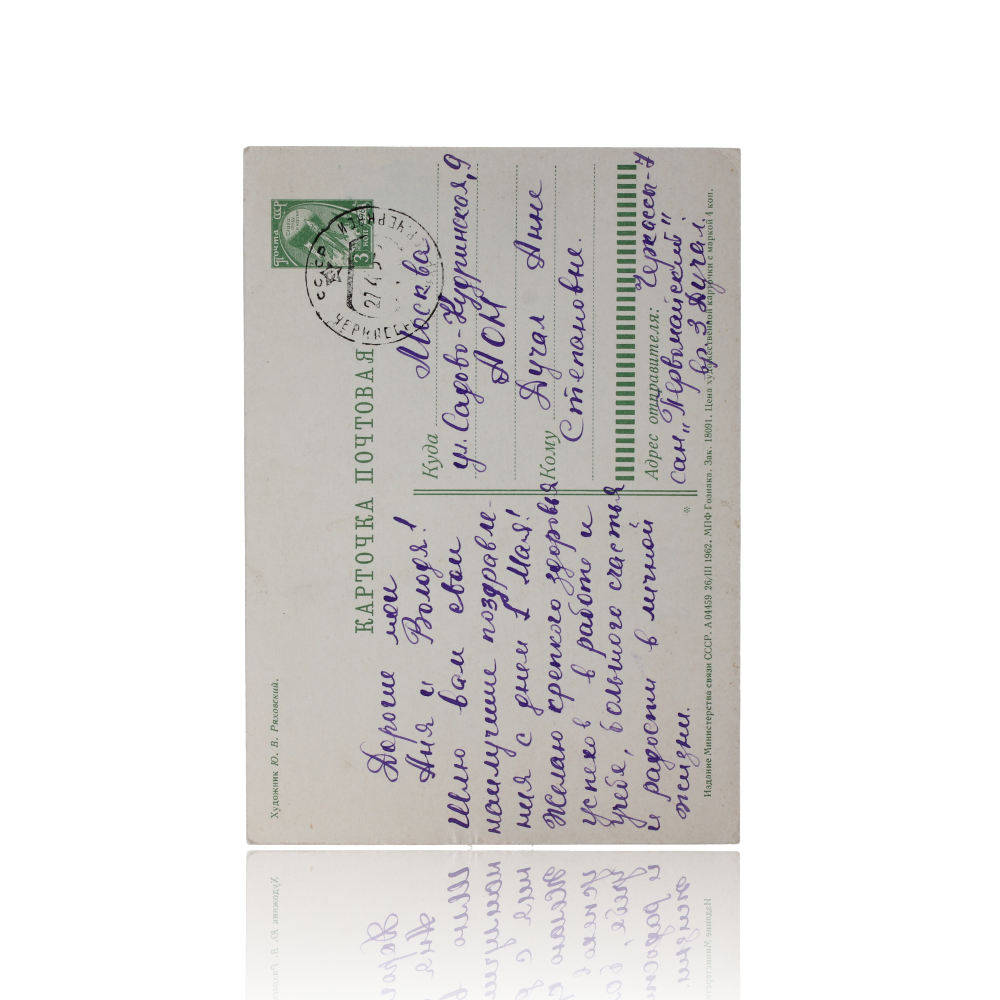 Художник Ю. В. Ряховский.
КАРТОЧКА ПОЧТОВАЯ
Почта СССР
3 коп
СССР
ЧЕРКАССЫ
27 4
Дорогие мои
Аня и Володя!
Шлю вам свои
наилучшие поздравле-
ния с днем 1 Мая!
Желаю крепкого здоровья
успехов в работе и
учебе, большого счастья
и радости в личной
жизни.
Куда Москва
ул. Садово-Кудринская, 9
АОН
Кому Дучал Анне
Степановне.
Адрес отправителя: Черкассы-7
сан „Первомайский"
вр. З. Дучал.
Издание Министерства связи СССР. А 04459 26/III 1962. МПФ Гознака. Зак. 18091. Цена художественной карточки с маркой 4 коп.